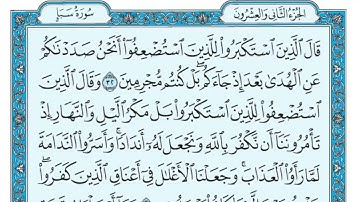 سُورَةُ سَبَإٍ الجُزْءُ الثَّانِي وَالعِشْرُونَ
قَالَ ٱلَّذِينَ ٱسْتَكْبَرُوا۟ لِلَّذِينَ ٱسْتُضْعِفُوٓا۟ أَنَحْنُ صَدَدْنَٰكُمْ
عَنِ ٱلْهُدَىٰ بَعْدَ إِذْ جَآءَكُم ۖ بَلْ كُنتُم مُّجْرِمِينَ ٣٢ وَقَالَ ٱلَّذِينَ
ٱسْتُضْعِفُوا۟ لِلَّذِينَ ٱسْتَكْبَرُوا۟ بَلْ مَكْرُ ٱلَّيْلِ وَٱلنَّهَارِ إِذْ
تَأْمُرُونَنَآ أَن نَّكْفُرَ بِٱللَّهِ وَنَجْعَلَ لَهُۥٓ أَندَادًا ۚ وَأَسَرُّوا۟ ٱلنَّدَامَةَ
لَمَّا رَأَوُا۟ ٱلْعَذَابَ ۚ وَجَعَلْنَا ٱلْأَغْلَٰلَ فِىٓ أَعْنَاقِ ٱلَّذِينَ كَفَرُوا۟ ۖ